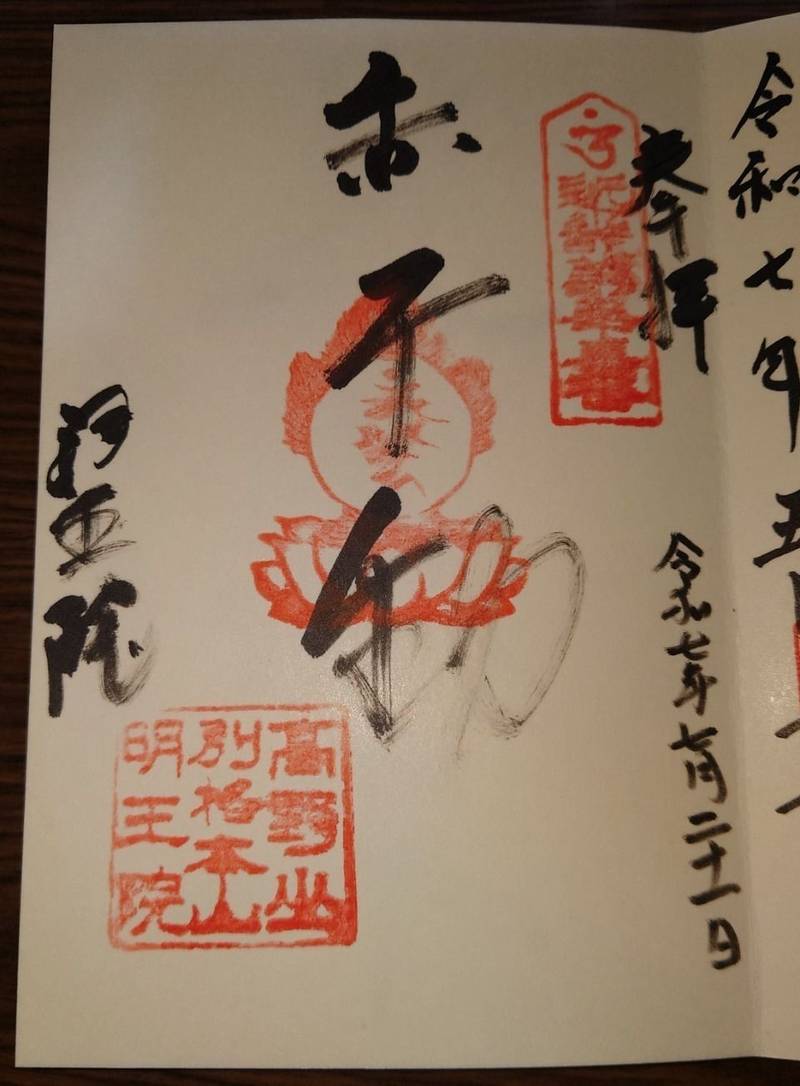 令和七年五
奉拝
令和七年七月二十一日
赤不動
明王院
高野山
別格本山
明王院